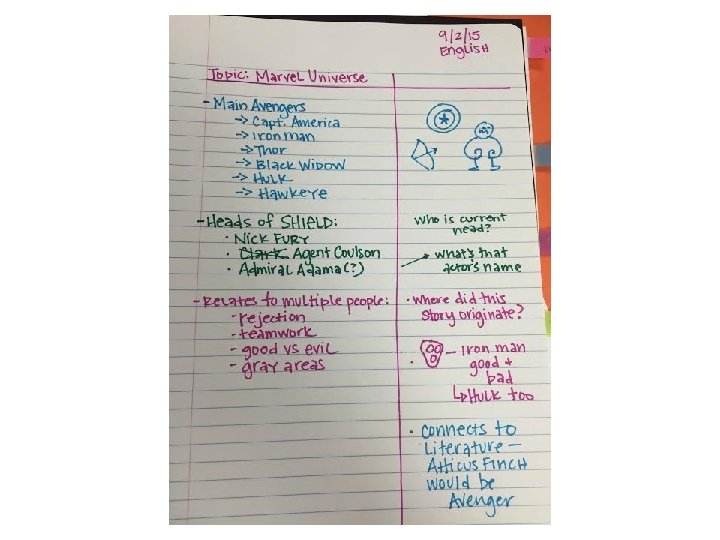 9/2/15
English
Topic: Marvel Universe
- Main Avengers
-> Capt. America
-> Iron man
-> Thor
-> Black Widow
-> Hulk
-> Hawkeye
- Heads of SHIELD:
· Nick Fury
· Clark Agent Coulson
· Admiral Adama(?)
Who is current
head?
what's that
actor's name
- Relates to multiple people:
- rejection
- teamwork
- good vs evil
- gray areas
· Where did this
story originate?
· – Iron man
good +
bad
↳ Hulk too
· Connects to
Literature –
Atticus Finch
would be
Avenger